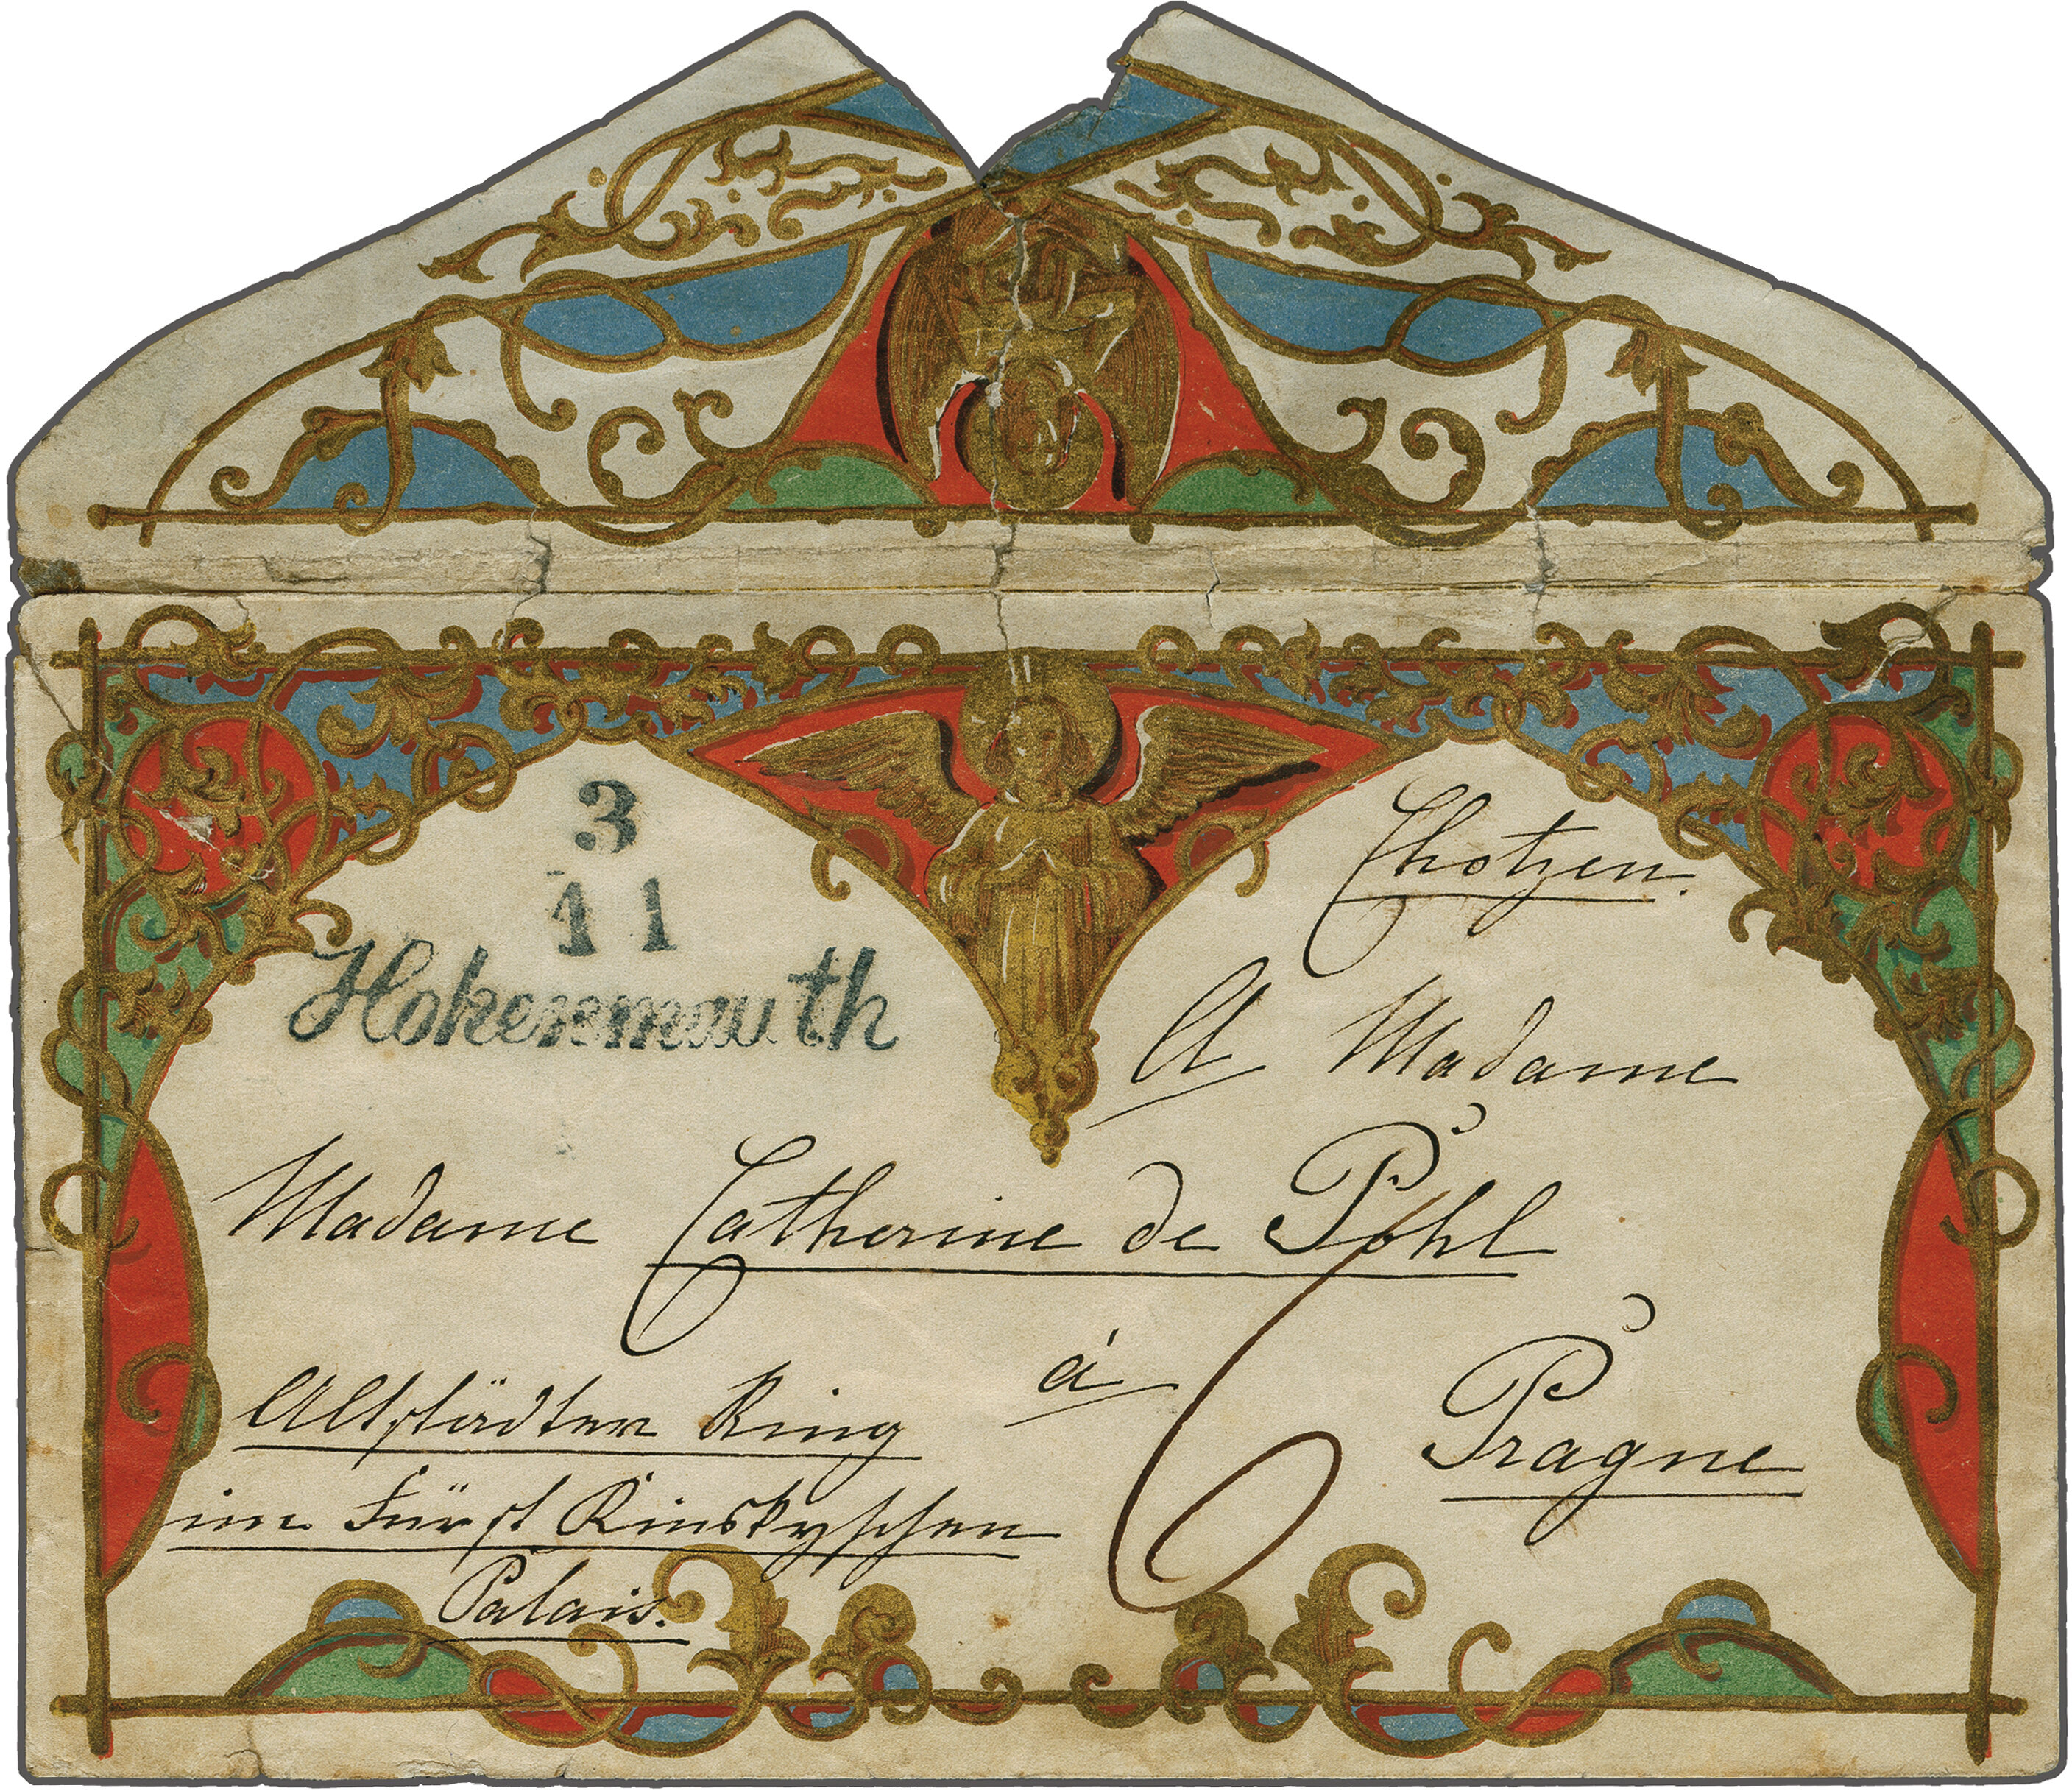 3
11
Hohenmauth
Chotzen.
A Madame
Madame Catherine de Pohl
à Prague
6
Altstädter Ring
im Fürst Kinskyschen
Palais.